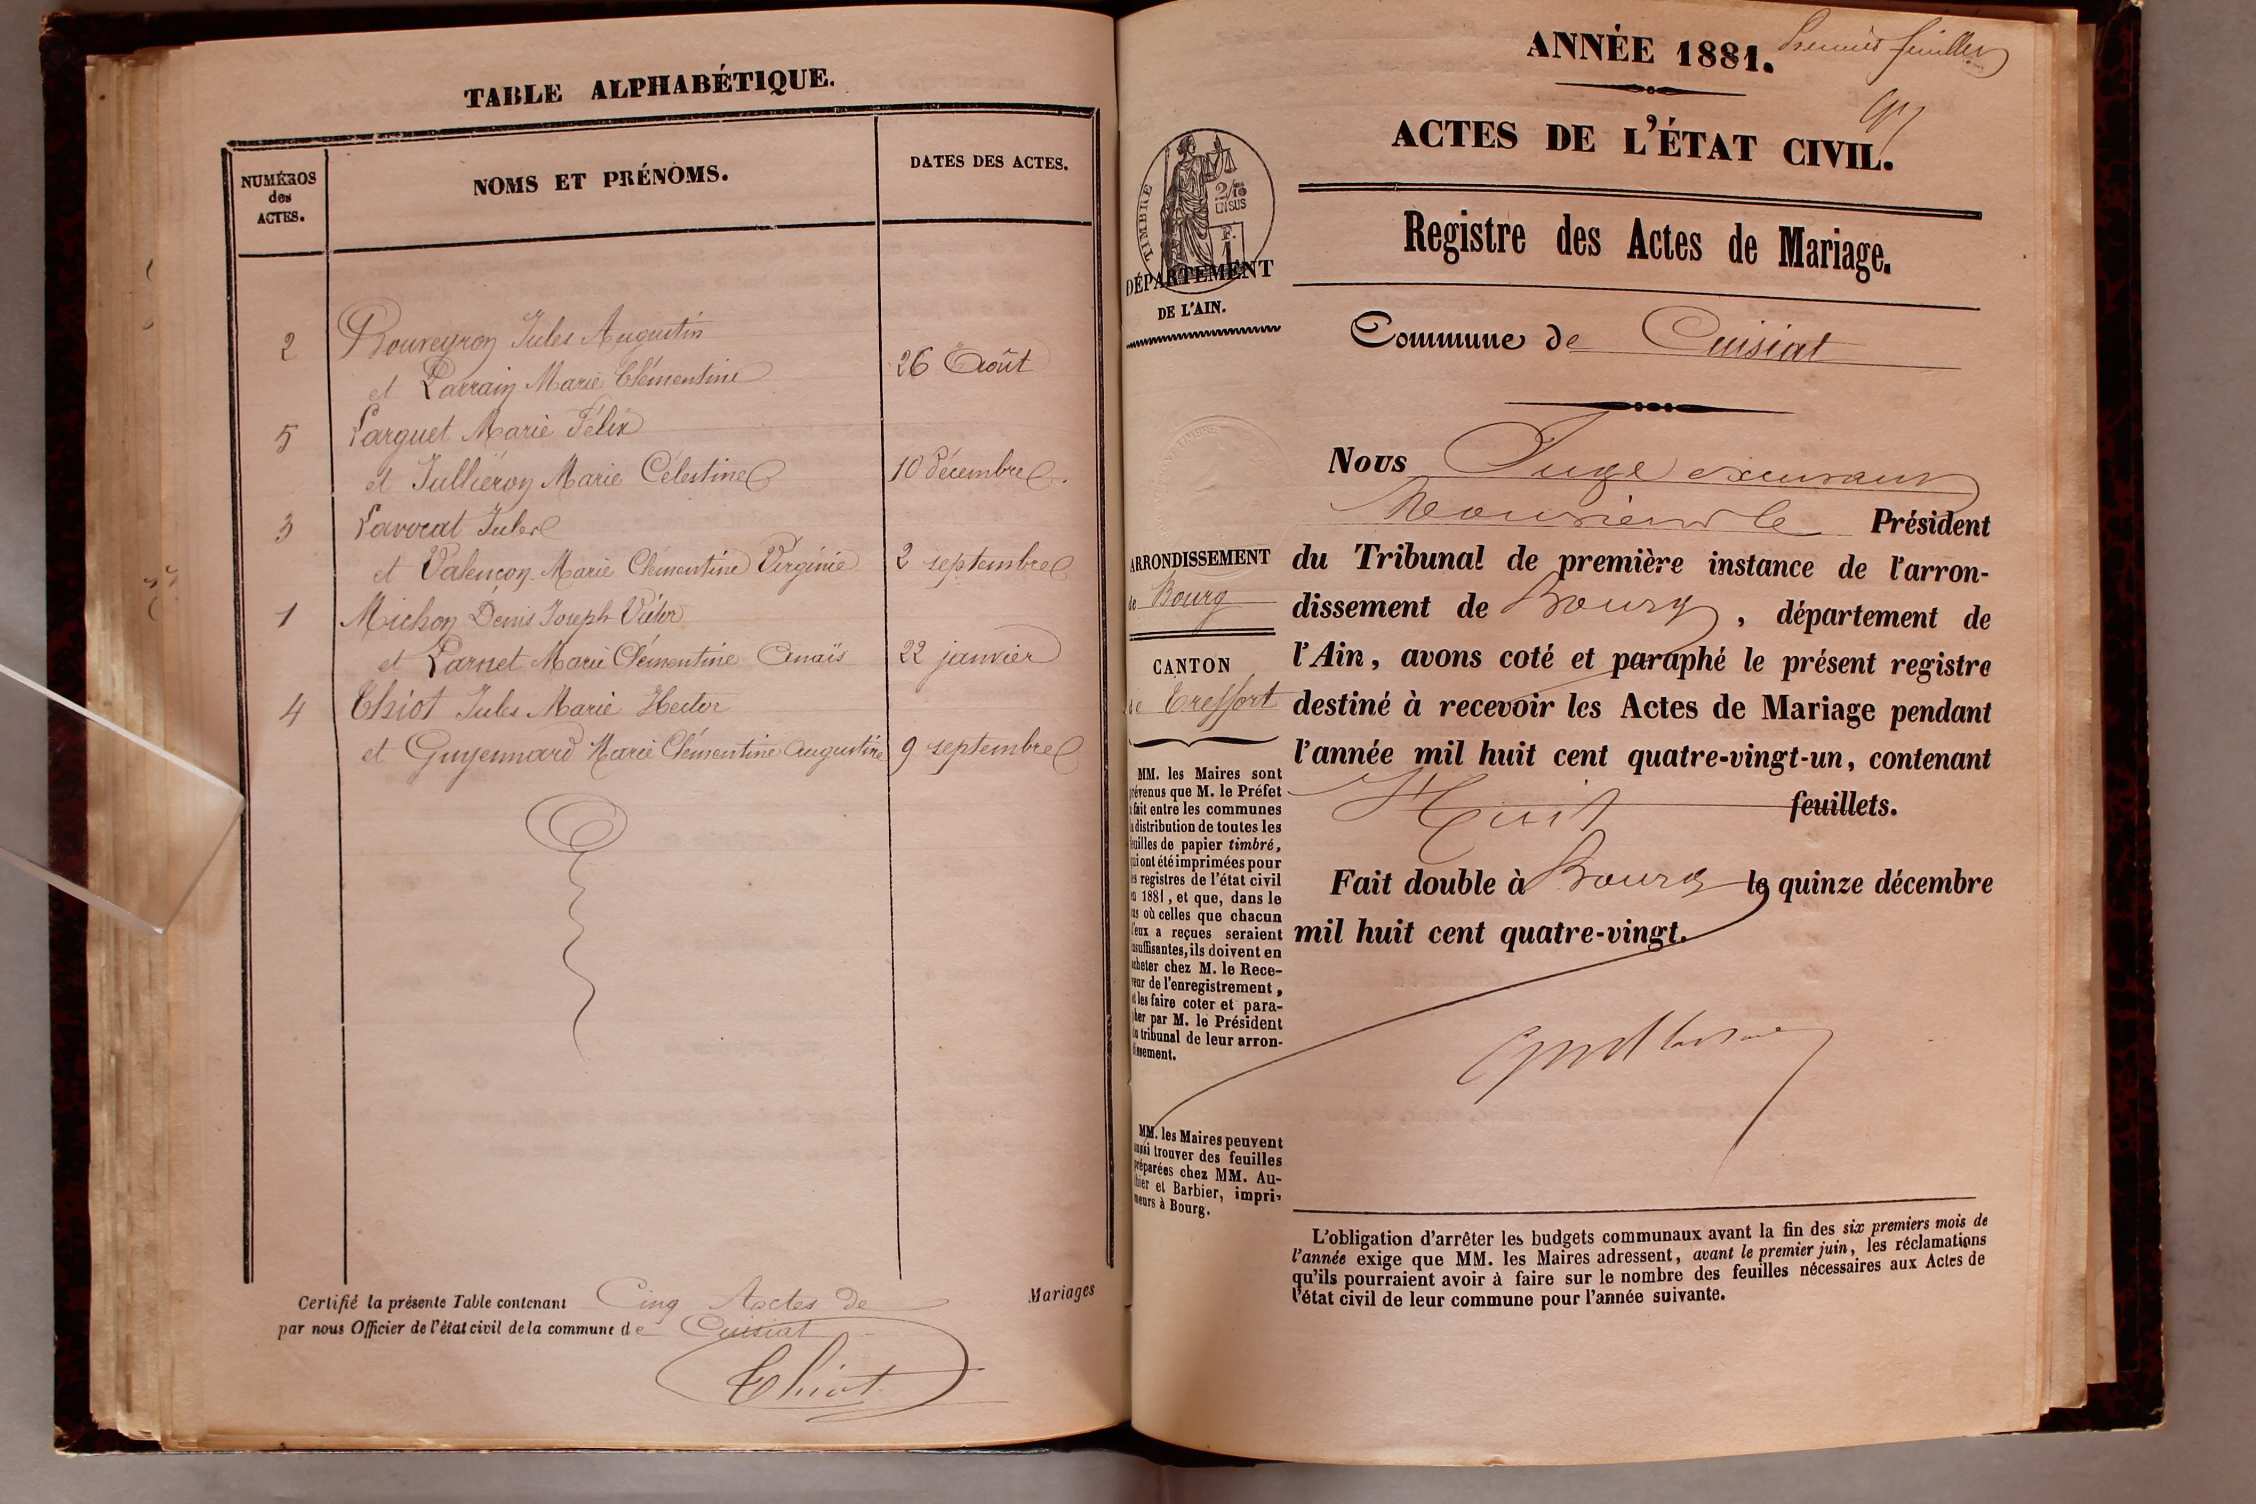 TABLE ALPHABÉTIQUE.
NUMÉROS
des
ACTES.
NOMS ET PRÉNOMS.
DATES DES ACTES.
2 Bouveyron Jules Augustin
et Parrain Marie Clémentine 26 Août
5 Parguet Marie Félix
et Julliéron Marie Célestine 10 décembre.
3 Pavocat Jules
et Valencon Marie Clémentine Virginie 2 septembre
1 Michon Denis Joseph Victor
et Parnet Marie Clémentine Anaïs 22 janvier
4 Chiot Jules Marie Hector
et Guyennard Marie Clémentine Augustine 9 septembre
Certifié la présente Table contenant Cinq Actes de Mariages
par nous Officier de l'état civil de la commune de Cuisiat
Chiot
Premier feuillet
ANNÉE 1881.
ACTES DE L'ÉTAT CIVIL.
TIMBRE
2/10
EN SUS
DÉPARTEMENT
DE L'AIN.
Registre des Actes de Mariage.
Commune de Cuisiat
Nous Juge
Monsieur le Président
du Tribunal de première instance de l'arron-
dissement de Bourg, département de
l'Ain, avons coté et paraphé le présent registre
destiné à recevoir les Actes de Mariage pendant
l'année mil huit cent quatre-vingt-un, contenant
Huit feuillets.
Fait double à Bourg le quinze décembre
mil huit cent quatre-vingt.
ARRONDISSEMENT
de Bourg
CANTON
de Treffort
MM. les Maires sont
prévenus que M. le Préfet
a fait entre les communes
la distribution de toutes les
feuilles de papier timbré,
qui ont été imprimées pour
les registres de l'état civil
en 1881, et que, dans le
cas où celles que chacun
d'eux a reçues seraient
insuffisantes, ils doivent en
acheter chez M. le Rece-
veur de l'enregistrement,
et les faire coter et para-
pher par M. le Président
du tribunal de leur arron-
dissement.
MM. les Maires peuvent
aussi trouver des feuilles
préparées chez MM. Au-
thier et Barbier, impri-
meurs à Bourg.
L'obligation d'arrêter les budgets communaux avant la fin des six premiers mois de
l'année exige que MM. les Maires adressent, avant le premier juin, les réclamations
qu'ils pourraient avoir à faire sur le nombre des feuilles nécessaires aux Actes de
l'état civil de leur commune pour l'année suivante.